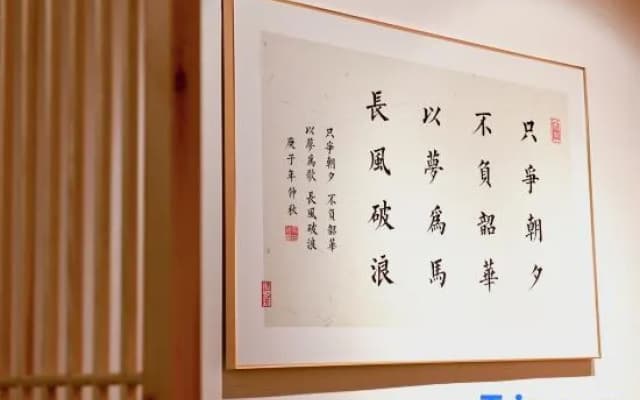 只爭朝夕
不負韶華
以夢為馬
長風破浪
只爭朝夕 不負韶華
以夢為歌 長風破浪
庚子年仲秋